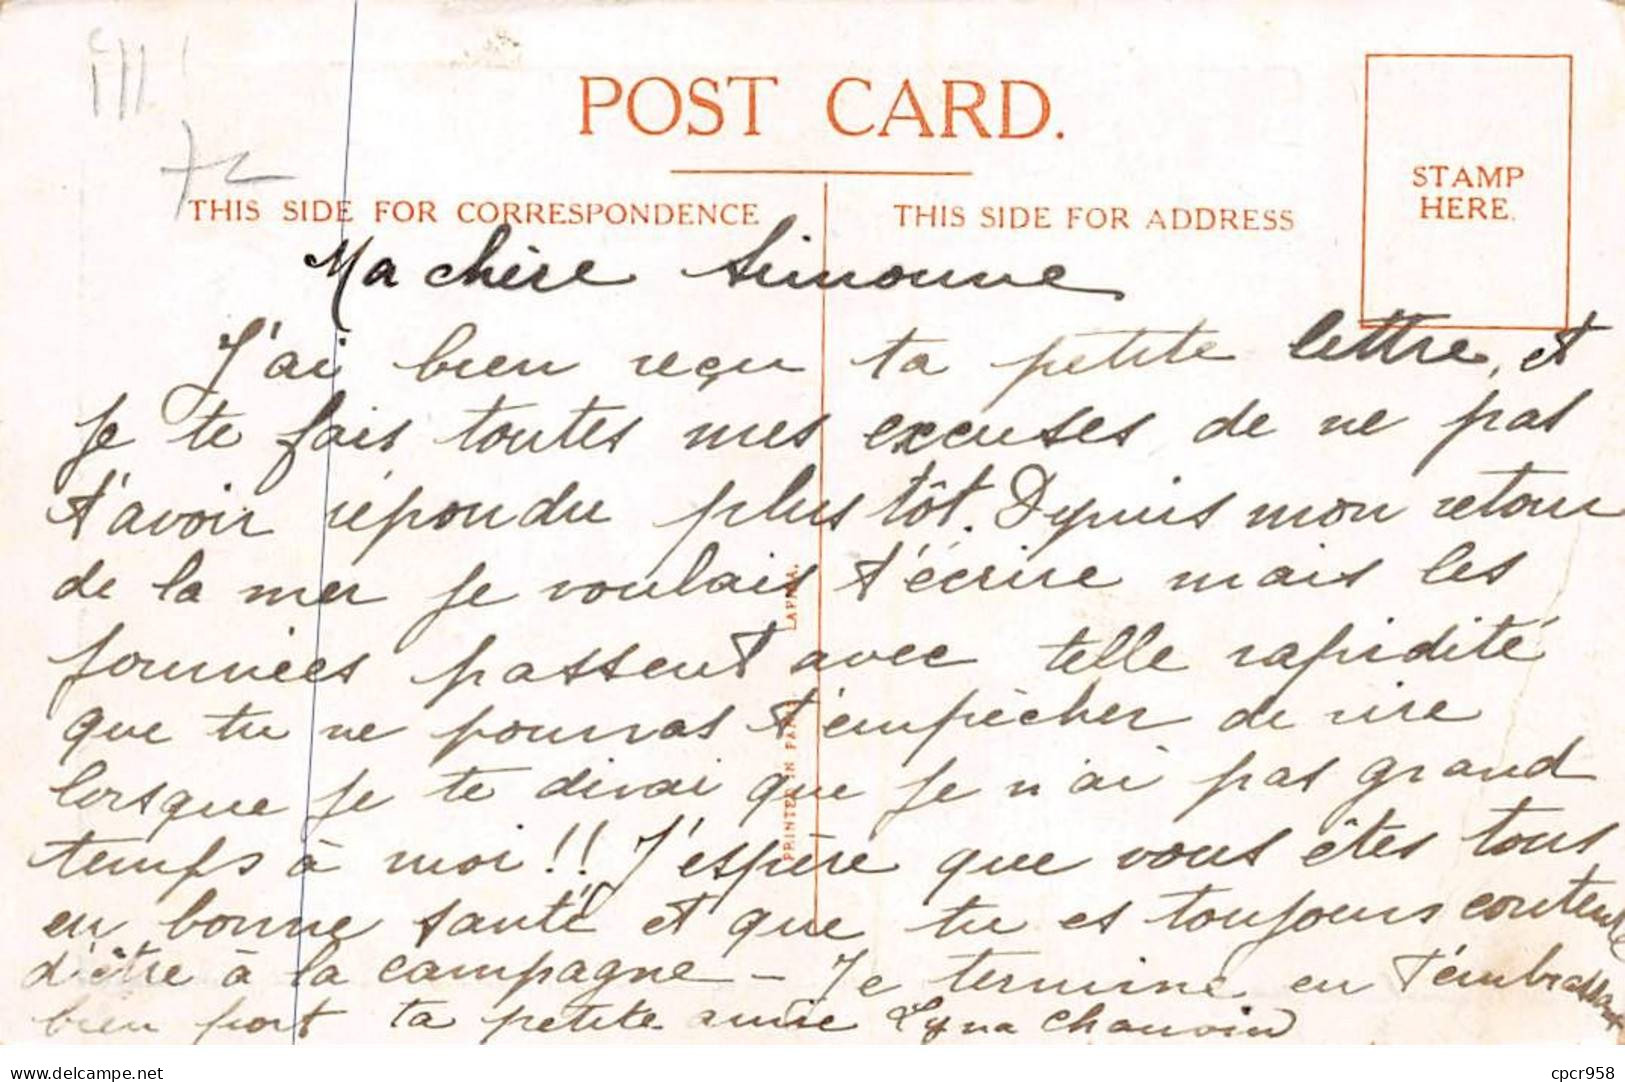 POST CARD.
THIS SIDE FOR CORRESPONDENCE
THIS SIDE FOR ADDRESS
STAMP
HERE.
Ma chère Simonne
J'ai bien reçu ta petite lettre, et
je te fais toutes mes excuses de ne pas
t'avoir répondu plus tôt. Depuis mon retour
de la mer je voulais t'écrire mais les
journées passent avec telle rapidité
que tu ne pourras t'empêcher de rire
lorsque je te dirai que je n'ai pas grand
temps à moi!! J'espère que vous êtes tous
en bonne santé et que tu es toujours contente
d'être à la campagne – Je termine en t'embrassant
bien fort ta petite amie Lyna Chauvin
PRINTED IN
delcampe.net
cpcr958